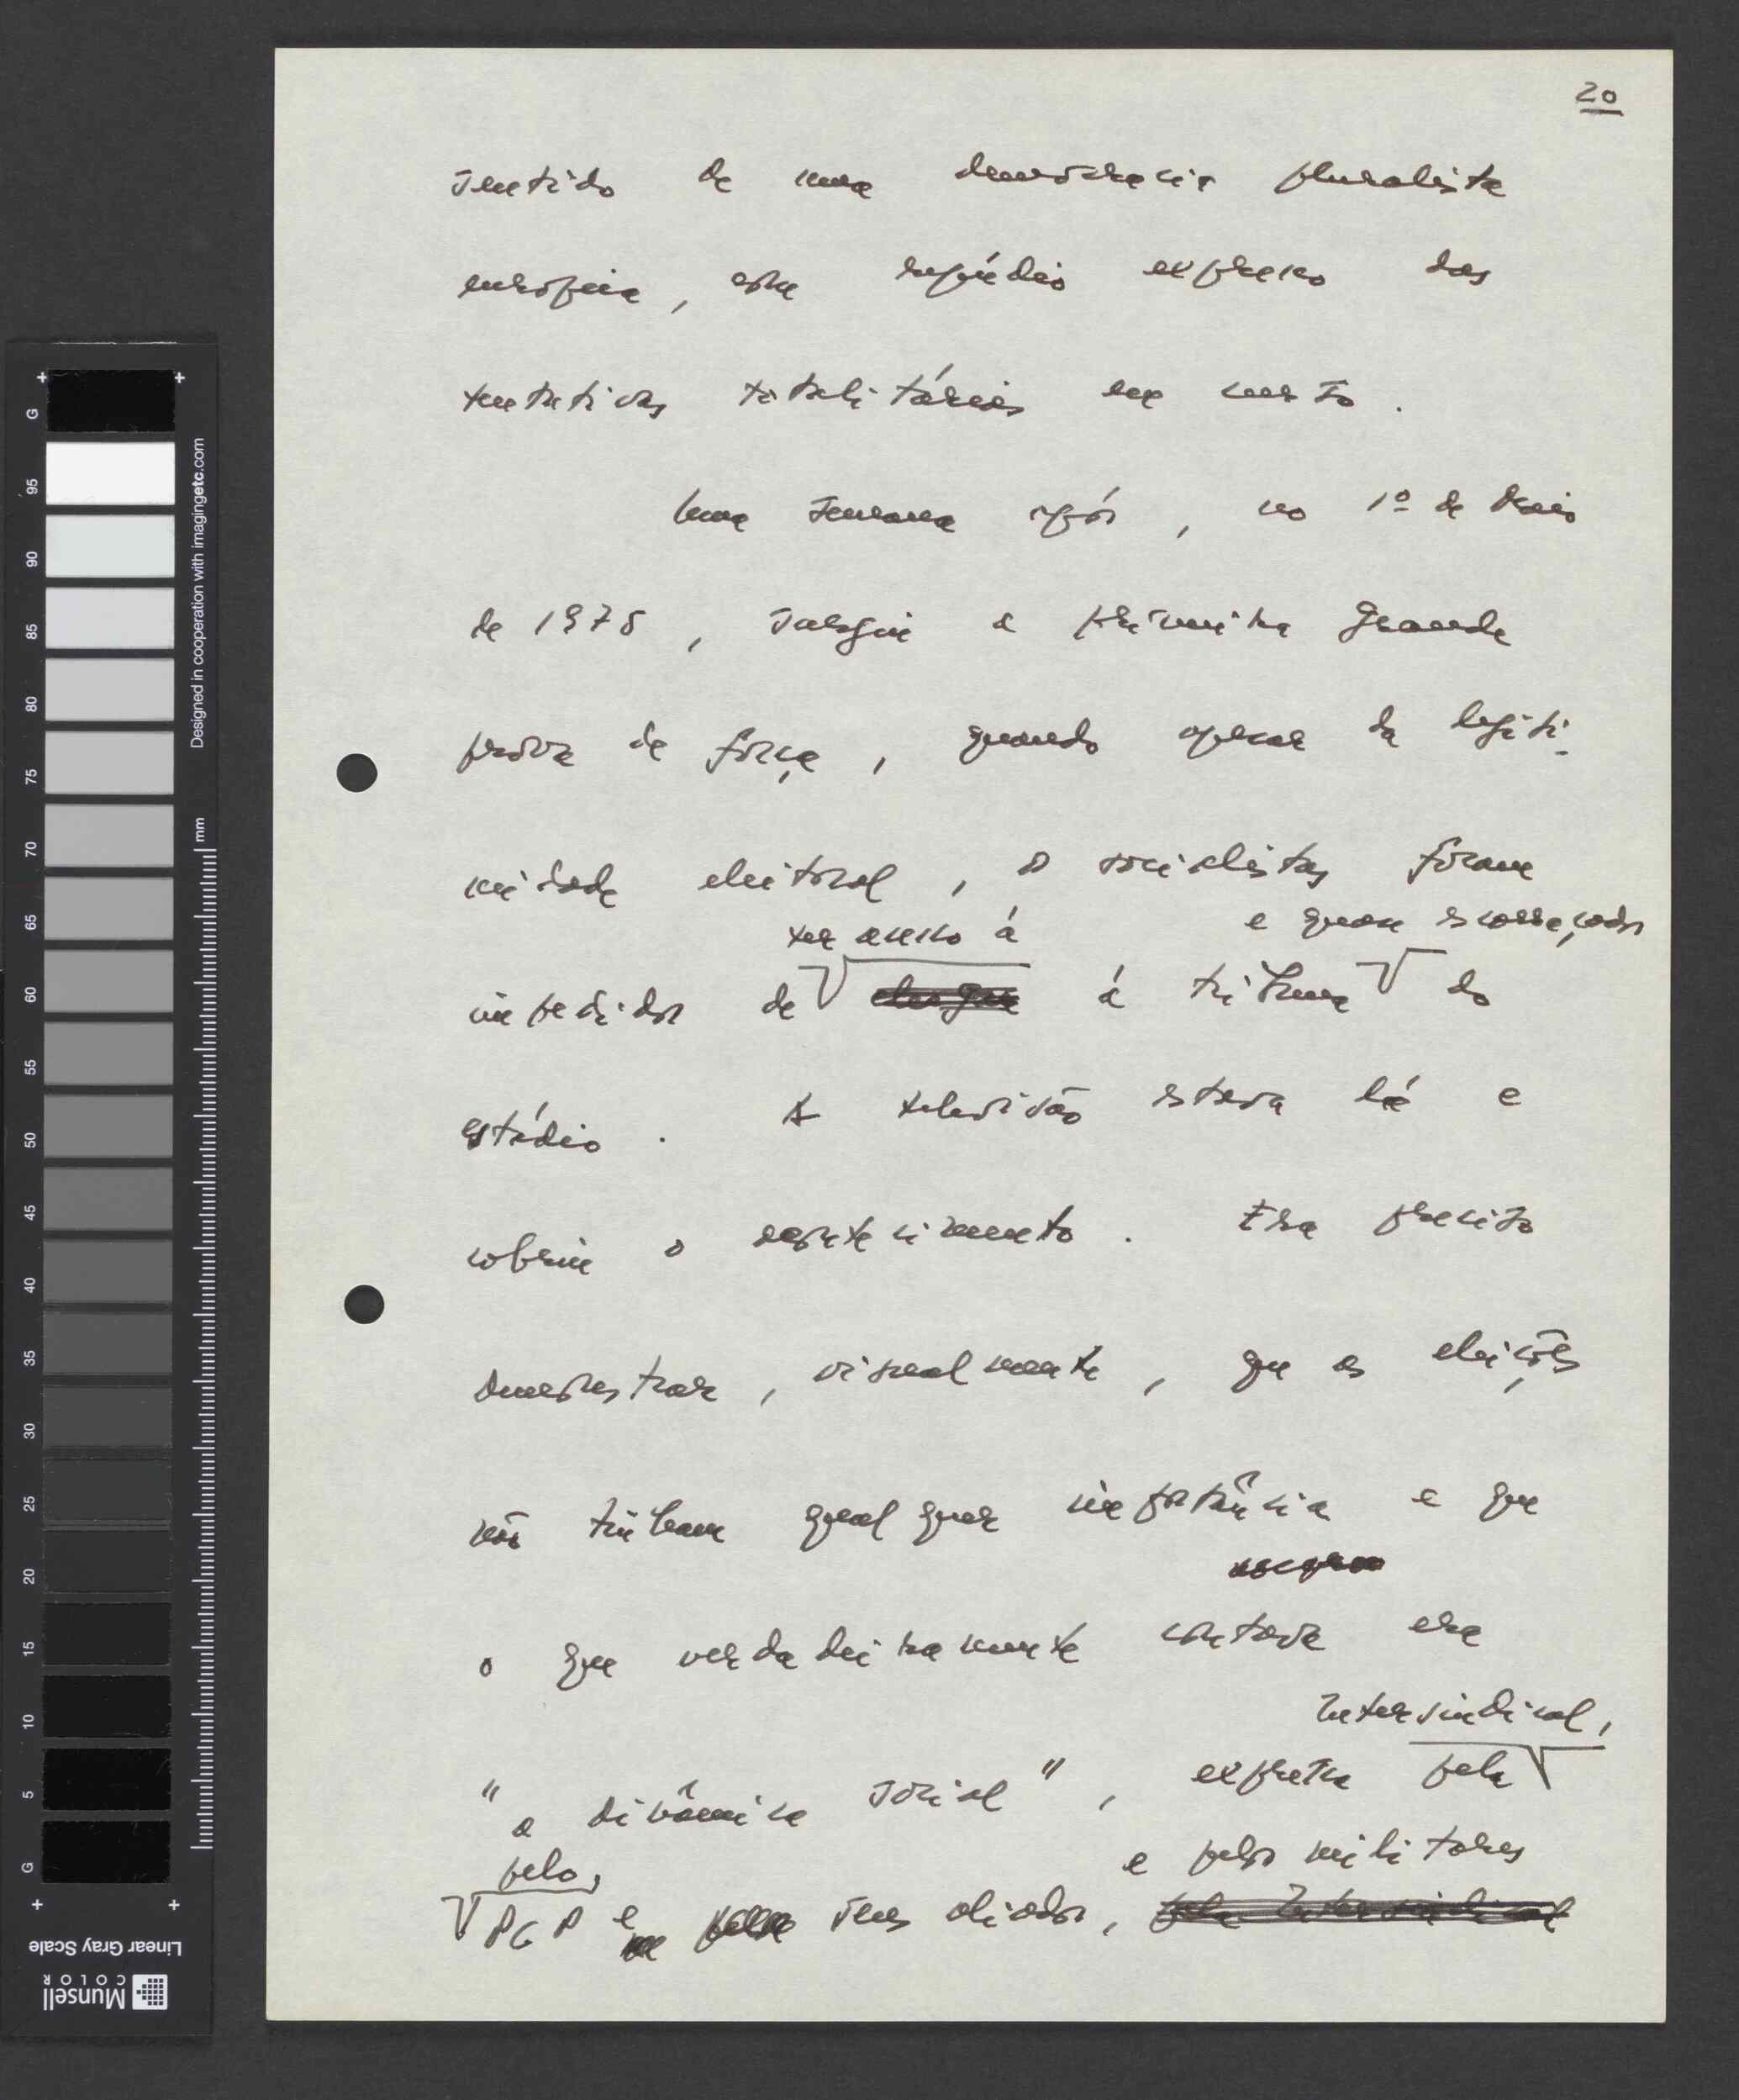 20
sentido de uma democracia pluralista
europeia, este repúdio expresso das
tentativas totalitárias em curso.
Uma semana após, no 1º de Maio
de 1975, surgiu a primeira grande
prova de força, quando apesar da legiti-
midade eleitoral, os socialistas foram
ter acesso à e quase escorraçados
impedidos de chegar à tribuna do
estádio. A televisão estava lá e
cobriu o acontecimento. Era preciso
demonstrar, visualmente, que as eleições
não tinham qualquer importância e que
o que verdadeiramente contava era
Intersindical,
"a dinâmica social", expressa pela
pelo, e pelos militares
PCP e seus aliados, pela Intersindical
Designed in cooperation with imagingetc.com
mm
G 95 90 85 80 75 70 65 60 55 50 45 40 35 30 25 20 15 10 5 G
Linear Gray Scale
Munsell
COLOR